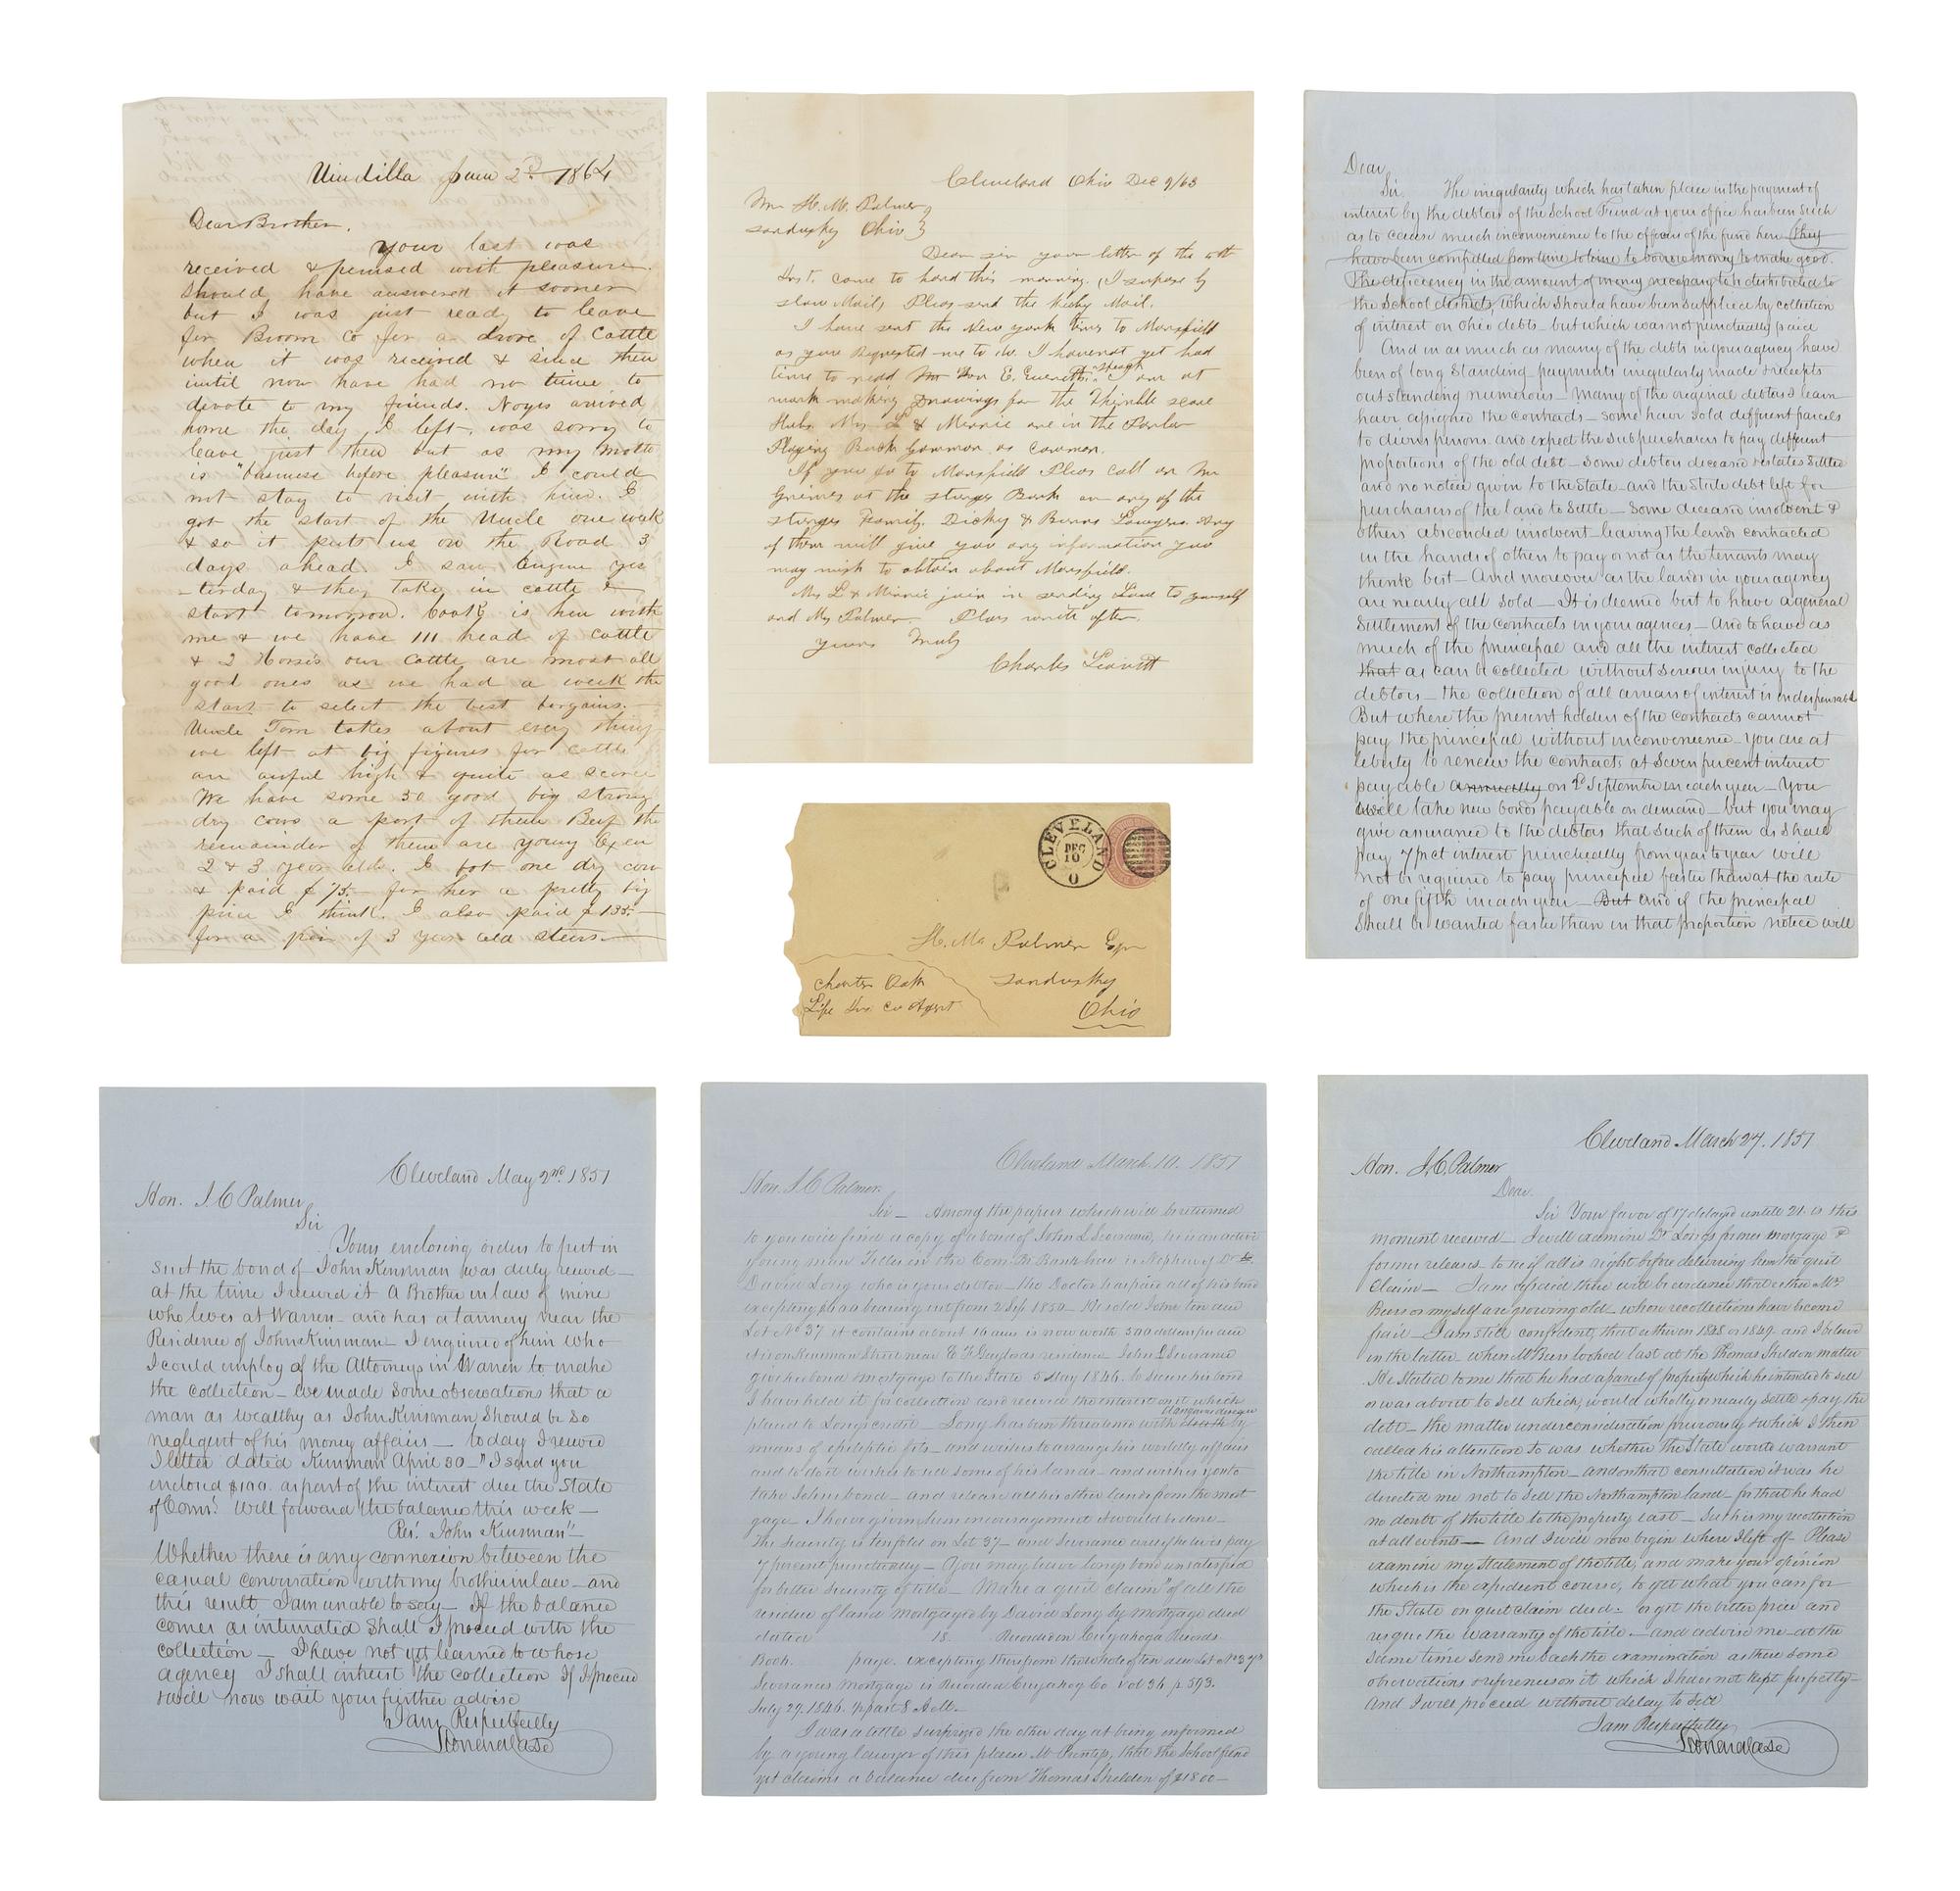 Unidilla June 2d 1864
Dear Brother,
Your last was
received & perused with pleasure.
Should have answered it sooner
but I was just ready to leave
for Broom Co for a drove of Cattle
when it was received & since then
until now have had no time to
devote to my friends. Noyes arrived
home the day I left. was sorry to
leave just then but as my motto
is "business before pleasure" I could
not stay to visit with him. I
got the start of the Uncle one week
& so it puts us on the Road 3
days ahead I saw Eugene yes
-terday & they take in cattle &
start tomorrow. Cook is here with
me & we have 111 head of cattle
& 2 Horses our cattle are most all
good ones as we had a week the
start to select the best bargains.
Uncle Tom takes about every thing
we left at big figures for cattle
are awful high & quite as scarce
We have some 50 good big strong
dry cows a part of them Beef the
remainder of them are young Oxen
2 & 3 year olds. I got one dry cow
& paid $75.- for her a pretty big
price I think. I also paid $135.-
for a pair of 3 year old steers.
Cleveland Ohio Dec 9/63
Mr H. M. Palmer
Sandusky Ohio
Dear sir your letter of the
Inst. came to hand this morning. (I supose by
slow Mail) Pleas send the by Mail.
I have sent the New york times to Mansfield
as you Requested me to do. I have not yet had
time to read Hon E. Everetts Speach I am at
work making Drawings for the scare
Hub. Mrs L & Minnie are in the Parlor
Playing Back Gammon as Common.
If you go to Mansfield Pleas call on Mr
Grimes at the Sturges Bank or any of the
Sturges Family. Dicky & Burns Lawyers. Any
of them will give you any information you
may wish to obtain about Mansfield.
Mrs L & Minnie join in sending Love to yourself
and Mrs Palmer. Pleas write often.
yours Truly
Charles Leavitt
CLEVELAND O
DEC
10
H. M. Palmer Esqr
Sandusky
Ohio
Charter Oak
Life Ins Co Agent
Dear
Sir. The irregularity which has taken place in the payment of
interest by the debtors of the School Fund at your office has been such
as to cause much inconvenience to the officers of the fund here (they
have been compelled from time to time to borrow money to make good.
The deficiency in the amount of money necessary to be distributed to
the School districts, which should have been supplied by collection
of interest on Ohio debts - but which was not punctually paid
And in as much as many of the debts in your agency have
been of long standing - payments irregularly made & receipts
outstanding numerous - Many of the original debtors I learn
have assigned the contracts - some have sold different parcels
to divers persons and expect the subpurchasers to pay different
proportions of the old debt - some debtors deceased & estates settled
and no notice given to the State - and the State debt left for
purchasers of the land to settle - Some deceased insolvent &
others absconded insolvent - leaving the lands contracted
in the hands of others to pay or not as the tenants may
think best - And moreover as the lands in your agency
are nearly all sold - It is deemed best to have a general
Settlement of the contracts in your agency - And to have as
much of the principal and all the interest collected
that as can be collected without serious injury to the
debtors - the collection of all arrears of interest is indespensable
But where the present holders of the contracts cannot
pay the principal without inconvenience - You are at
liberty to renew the contracts at Seven percent interest
payable annually on 2d September in each year - You
will take new bonds payable on demand - but you may
give assurance to the debtors that such of them as shall
pay 7 pct interest punctually from year to year will
not be required to pay principal faster than at the rate
of one fifth in each year - But and if the principal
shall be wanted faster than in that proportion notice will
Cleveland May 2nd 1851
Hon. J. C Palmer
Sir
Yours enclosing orders to put in
suit the bond of John Kinsman was duly recievd -
at the time I recievd it A Brother in law of mine
who lives at Warren - and has a tannery near the
Residence of John Kinsman - I enquired of him Who
I could employ of the Attorneys in Warren to make
the collection - we made some observations that a
man as wealthy as John Kinsman Should be So
negligent of his money affairs - today I recievd
I letter dated Kinsman April 30 - "I send you
inclosed $100. as part of the interest due the State
of Connt. Will forward the balance this week -
Res. John Kinsman" -
Whether there is any connexion between the
casual conversation with my brother in law - and
this result I am unable to say - If the balance
comes as intimated shall I proceed with the
collection - I have not yet learned to whose
agency I shall intrust the collection If I proceed
& will now wait your further advise
I am Respectfully
Cleveland March 10. 1851
Hon. J. C Palmer.
Sir - Among the papers which will be returned
to you will find a copy of a bond of John L Severance, he is an active
young man Teller in the Com. Br. Bank here is Nephew of Dr
David Long who is your debtor - the Doctor has paid all of his bond
excepting bearing int from 2 Sep 1850 - He sold John ten acre
Lot No 37 it contains about 10 acres is now worth 300 dollars per acre
Kinsman Street near E F Gaylords residence John L Severance
gives bond & mortgage to the State 5 May 1846. to secure his bond
I have held it for collection and received the interest on it which
placed to Longs credit - Long has been threatened with death by
means of epileptic fits - and wishes to arrange his worldly affairs
and to do it wishes to sell some of his lands - and wishes you to
take Johns bond - and release all his other lands from the mort
gage - I have given him encouragement it would be done -
The security is tenfold on Lot 37 - and Severance
7 percent punctually - You may leave Longs bond unsatisfied
for better security of title - Make a quit claim of all the
residue of land mortgaged by David Long by mortgage deed
dated 18 Recorded in Cuyahoga Records
Book page. excepting therefrom the whole of ten acre Lot No 37
Severances mortgage is Recorded Cuyahoga Co Vol 36 p 593.
July 27 1846.
I was a little surprised the other day at being informed
by a young lawyer of this place Mr Prentiss, that the School fund
yet claims a balance due from Thomas Shelden of $1800 -
Cleveland March 27. 1851
Hon. J. C. Palmer
Dear
Sir Your favor of 17 delayed untill 21 is this
moment received - I will examine Dr Longs former mortgage &
former releases to see if all is right before delivering him the quit
Claim - I am afraid there will be evidence that either Mr
Beers or myself are growing old - when recollections have become
frail - I am still confident, that either in 1848 or 1849. and I believe
in the latter when Mr Beers looked last at the Thomas Shelden matter
He stated to me that he had a parcel of property which he intended to sell
or was about to sell which, would wholly or nearly settle & pay the
debt - the matter under consideration previously & which I then
called his attention to was whether the State would warrant
the title in Northampton - and on that consultation it was he
directed me not to sell the Northampton land - for that he had
no doubt of the title to the property east - such is my recollection
at all events - And I will now begin where I left off - Please
examine my Statement of the title, and make your opinion
which is the expedient course, to get what you can for
the State on quit claim deed - or get the better price and
risque the warranty of the title - and advise me - at the
same time send me back the examination as there some
observations or references on it which I have not kept perfectly -
And I will proceed without delay to sell
I am Respectfully